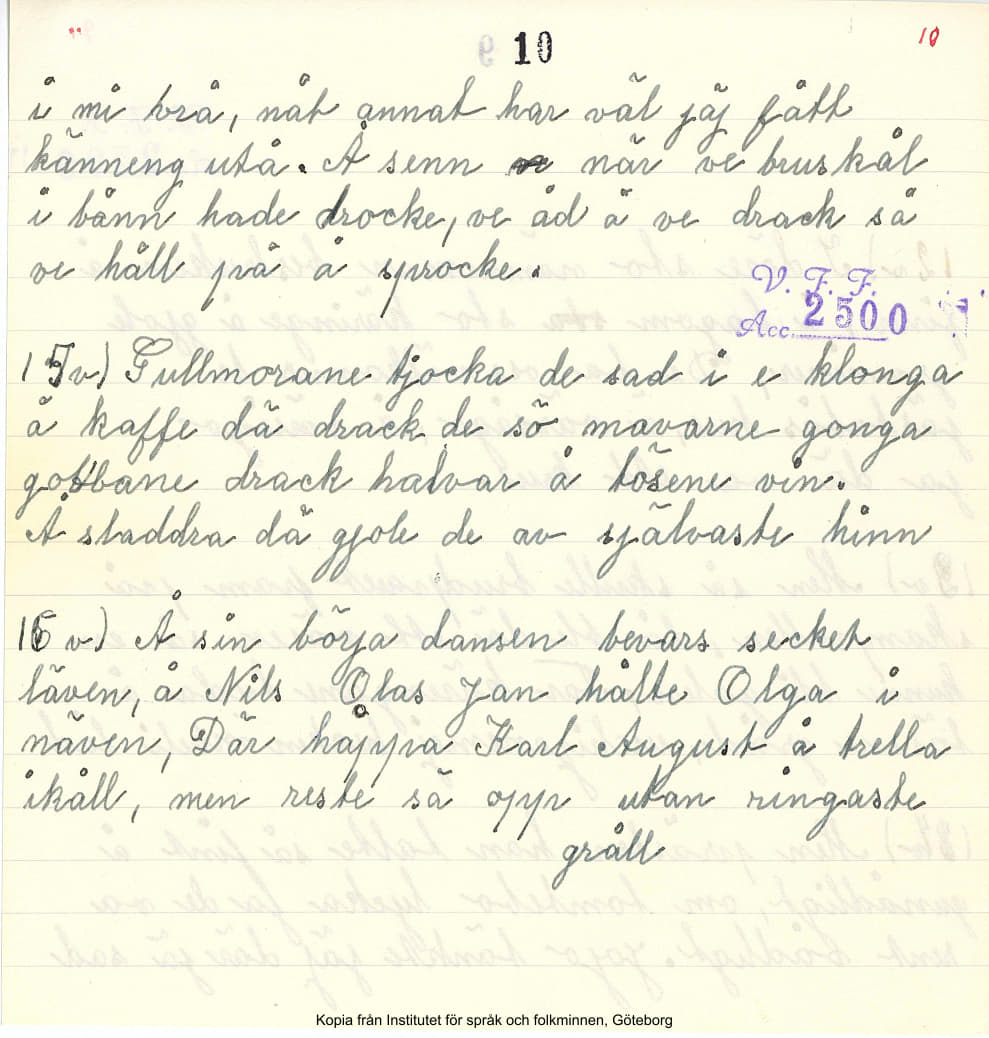 10 10
i mi vrå, nåt annat har väl jäj fått
känneng utå. Å senn när ve bruskål
i bånn hade drocke, ve åd å ve drack så
ve håll på å sprocke.
V. F. F.
Acc. 2500
15 v) Gullmorane tjocka de sad i e klonga
å kaffe då drack de sö mavarne gonga
gobbane drack halvar å tösene vin.
Å sladdra då gjole de av självaste hinn
16 v) Å sin börja dansen bevars secket
läven, å Nils Olas Jan hålte Olga i
näven, Där håppa Karl August å trella
ikåll, men reste så opp utan ringaste
gråll
Kopia från Institutet för språk och folkminnen, Göteborg